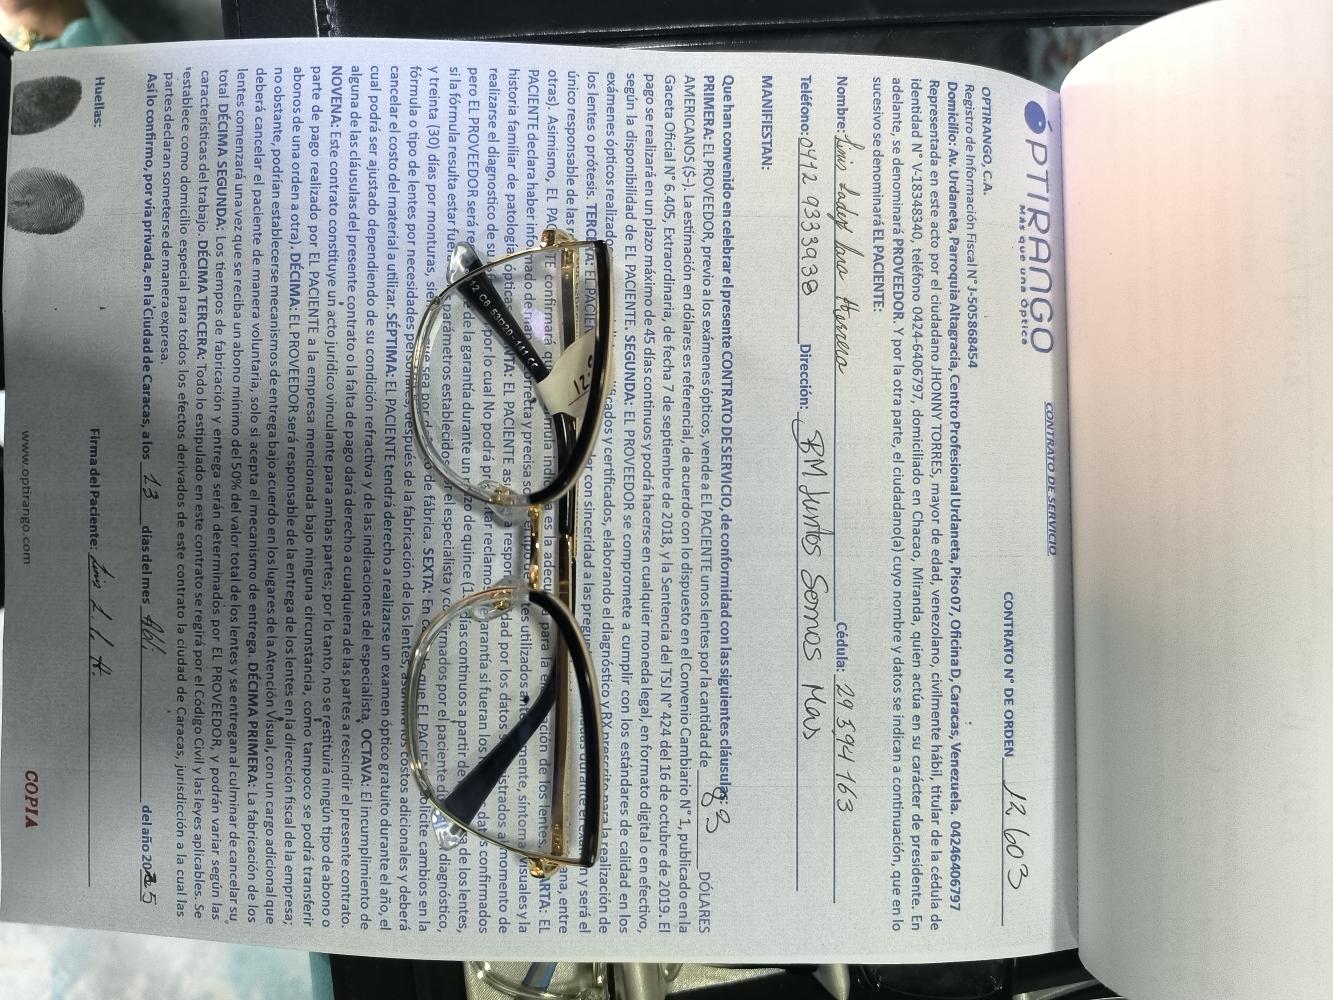 OPTIRANGO
Más que una óptica
CONTRATO DE SERVICIO
CONTRATO N° DE ORDEN 12603
OPTIRANGO, C.A.
Registro de Información Fiscal N° J-505868454
Domicilio: Av. Urdaneta, Parroquia Altagracia, Centro Profesional Urdaneta, Piso 07, Oficina D, Caracas, Venezuela. 04246406797
Representada en este acto por el ciudadano JHONNY TORRES, mayor de edad, venezolano, civilmente hábil, titular de la cédula de
identidad N° V-18348340, teléfono 0424-6406797, domiciliado en Chacao, Miranda, quien actúa en su carácter de presidente. En
adelante, se denominará PROVEEDOR. Y por la otra parte, el ciudadano(a) cuyo nombre y datos se indican a continuación, que en lo
sucesivo se denominará EL PACIENTE:
Nombre: Herrera Cédula: 29 594 163
Teléfono: 0412 9333938 Dirección: BM Juntos Somos Mas
MANIFIESTAN:
Que han convenido en celebrar el presente CONTRATO DE SERVICIO, de conformidad con las siguientes cláusulas:
PRIMERA: EL PROVEEDOR, previo a los exámenes ópticos, vende a EL PACIENTE unos lentes por la cantidad de 83 DÓLARES
AMERICANOS ($-). La estimación en dólares es referencial, de acuerdo con lo dispuesto en el Convenio Cambiario N° 1, publicado en la
Gaceta Oficial N° 6.405, Extraordinaria, de fecha 7 de septiembre de 2018, y la Sentencia del TSJ N° 424 del 16 de octubre de 2019. El
pago se realizará en un plazo máximo de 45 días continuos y podrá hacerse en cualquier moneda legal, en formato digital o en efectivo,
según la disponibilidad de EL PACIENTE. SEGUNDA: EL PROVEEDOR se compromete a cumplir con los estándares de calidad en los
exámenes ópticos realizado ificados y certificados, elaborando el diagnóstico y RX prescrito para la realización de
los lentes o prótesis. TERCERA: EL PACIEN er con sinceridad a las pregun n y será el
único responsable de las ana, entre
otras). Asimismo, EL PAC TE confirmará qu mula indi es la adecu para la ación de los lentes. ARTA: EL
PACIENTE declara haber info ado de man orrecta y precisa so empo de tes utilizados mente, síntoma visuales y la
historia familiar de patología ópticas. NTA: EL PACIENTE as a respon dad por los datos strados al momento de
realizarse el diagnostico de su por lo cual No podrá pr ar reclamo arantía si fueran los datos confirmados
pero EL PROVEEDOR será re de la garantía durante un zo de quince (1 días continuos a partir de a de los lentes,
si la fórmula resulta estar fue arámetros establecido el especialista y co rmados por el paciente d diagnóstico,
y treinta (30) días por monturas, sie que sea por d o de fábrica. SEXTA: En c de que EL PACIE olicite cambios en la
fórmula o tipo de lentes por necesidades personales, después de la fabricación de los lentes, los costos adicionales y deberá
cancelar el costo del material a utilizar. SÉPTIMA: EL PACIENTE tendrá derecho a realizarse un examen óptico gratuito durante el año, el
cual podrá ser ajustado dependiendo de su condición refractiva y de las indicaciones del especialista. OCTAVA: El incumplimiento de
alguna de las cláusulas del presente contrato o la falta de pago dará derecho a cualquiera de las partes a rescindir el presente contrato.
NOVENA: Este contrato constituye un acto jurídico vinculante para ambas partes; por lo tanto, no se restituirá ningún tipo de abono o
parte de pago realizado por EL PACIENTE a la empresa mencionada bajo ninguna circunstancia, como tampoco se podrá transferir
abonos de una orden a otra). DÉCIMA: EL PROVEEDOR será responsable de la entrega de los lentes en la dirección fiscal de la empresa;
no obstante, podrían establecerse mecanismos de entrega bajo acuerdo en los lugares de la Atención Visual, con un cargo adicional que
deberá cancelar el paciente de manera voluntaria, solo si acepta el mecanismo de entrega. DÉCIMA PRIMERA: La fabricación de los
lentes comenzará una vez que se reciba un abono mínimo del 50% del valor total de los lentes y se entregan al culminar de cancelar su
total DÉCIMA SEGUNDA: Los tiempos de fabricación y entrega serán determinados por EL PROVEEDOR, y podrán variar según las
características del trabajo. DÉCIMA TERCERA: Todo lo estipulado en este contrato se regirá por el Código Civil y las leyes aplicables. Se
establece como domicilio especial para todos los efectos derivados de este contrato la ciudad de Caracas, jurisdicción a la cual las
partes declaran someterse de manera expresa.
Así lo confirmo, por vía privada, en la Ciudad de Caracas, a los 13 días del mes Abli del año 2025
Huellas: Firma del Paciente:
www.optirango.com
COPIA
12 C8 53020-141
12.